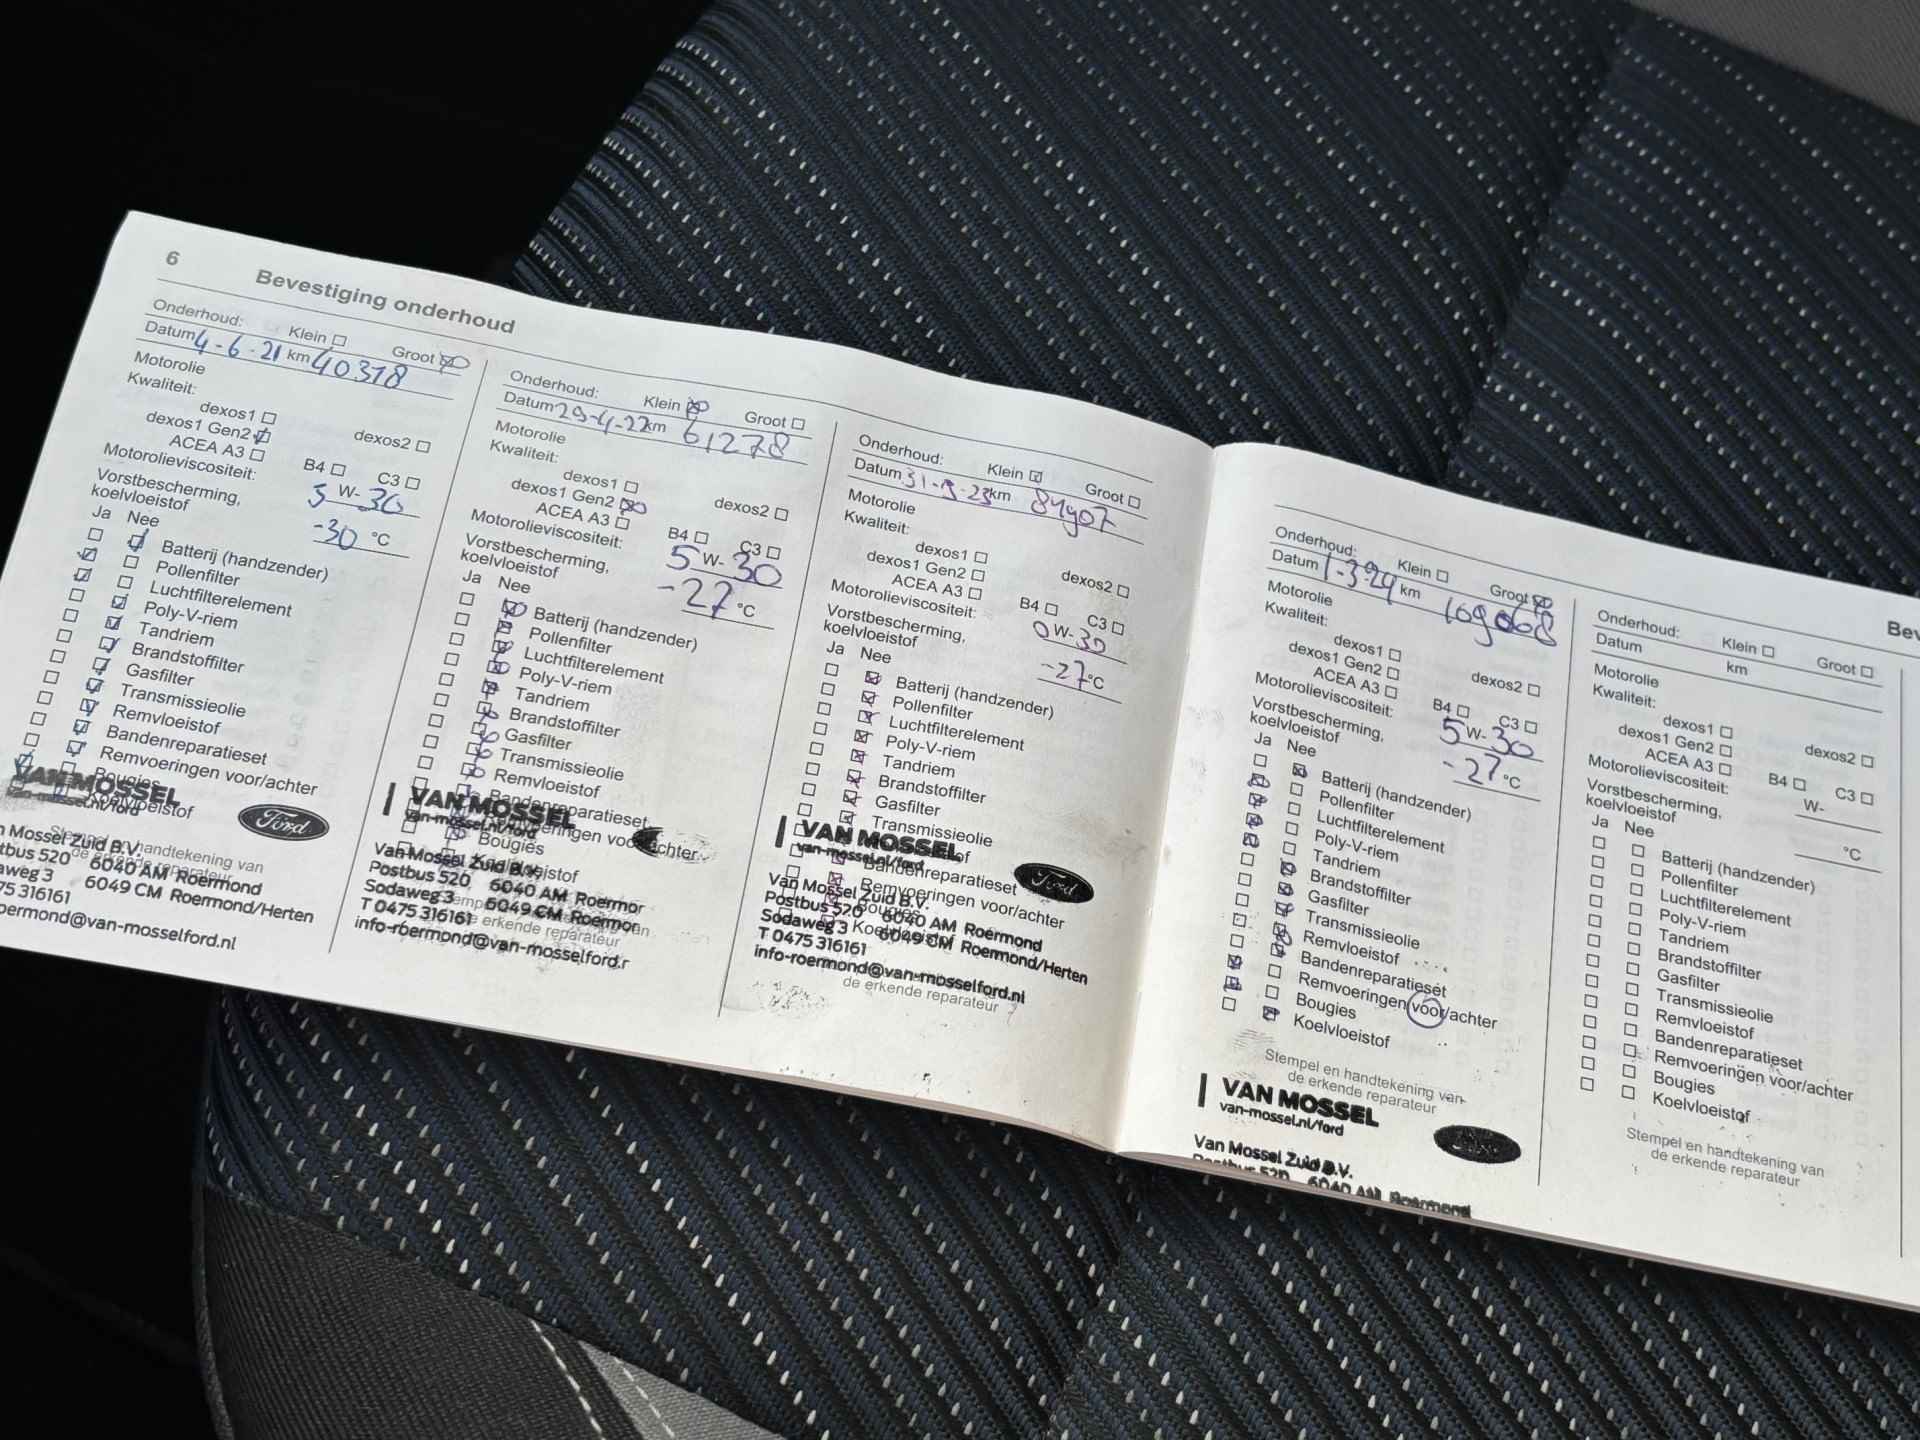 6
Bevestiging onderhoud
Onderhoud: Klein Groot
Datum 4-6-21 km 40318
Motorolie
Kwaliteit:
dexos1
dexos1 Gen2 dexos2
ACEA A3 B4 C3
Motorolieviscositeit: 5 W- 30
Vorstbescherming,
koelvloeistof -30 °C
Ja Nee
Batterij (handzender)
Pollenfilter
Luchtfilterelement
Poly-V-riem
Tandriem
Brandstoffilter
Gasfilter
Transmissieolie
Remvloeistof
Bandenreparatieset
Remvoeringen voor/achter
Bougies
Koelvloeistof
Stempel en handtekening van
VAN MOSSEL
van-mossel.nl/ford
Ford
Mossel Zuid B.V.
520 6040 AM Roermond
3 6049 CM Roermond/Herten
316161
@van-mosselford.nl
Onderhoud: Klein Groot
Datum 29-4-22 km 61278
Motorolie
Kwaliteit:
dexos1
dexos1 Gen2 dexos2
ACEA A3 B4 C3
Motorolieviscositeit: 5 W- 30
Vorstbescherming,
koelvloeistof -27 °C
Ja Nee
Batterij (handzender)
Pollenfilter
Luchtfilterelement
Poly-V-riem
Tandriem
Brandstoffilter
Gasfilter
Transmissieolie
Remvloeistof
Bandenreparatieset
Remvoeringen voor/achter
Bougies
Koelvloeistof
de erkende reparateur
VAN MOSSEL
van-mossel.nl/ford
Van Mossel Zuid B.V.
Postbus 520 6040 AM Roermor
Sodaweg 3 6049 CM Roermon
T 0475 316161
info-roermond@van-mosselford.r
Onderhoud: Klein Groot
Datum 31-3-23 km 84907
Motorolie
Kwaliteit:
dexos1
dexos1 Gen2 dexos2
ACEA A3 B4 C3
Motorolieviscositeit: 0 W- 30
Vorstbescherming,
koelvloeistof -27 °C
Ja Nee
Batterij (handzender)
Pollenfilter
Luchtfilterelement
Poly-V-riem
Tandriem
Brandstoffilter
Gasfilter
Transmissieolie
Bandenreparatieset
Remvoeringen voor/achter
Bougies
Koelvloeistof
de erkende reparateur
VAN MOSSEL
van-mossel.nl/ford
Ford
Van Mossel Zuid B.V.
Postbus 520 6040 AM Roermond
Sodaweg 3 6049 CM Roermond/Herten
T 0475 316161
info-roermond@van-mosselford.nl
Onderhoud: Klein Groot
Datum 1-3-24 km 109068
Motorolie
Kwaliteit:
dexos1
dexos1 Gen2 dexos2
ACEA A3 B4 C3
Motorolieviscositeit: 5 W- 30
Vorstbescherming,
koelvloeistof -27 °C
Ja Nee
Batterij (handzender)
Pollenfilter
Luchtfilterelement
Poly-V-riem
Tandriem
Brandstoffilter
Gasfilter
Transmissieolie
Remvloeistof
Bandenreparatieset
Remvoeringen voor/achter
Bougies
Koelvloeistof
Stempel en handtekening van
de erkende reparateur
VAN MOSSEL
van-mossel.nl/ford
Van Mossel Zuid B.V.
Postbus 520 6040 AM Roermond
Bev
Onderhoud: Klein Groot
Datum km
Motorolie
Kwaliteit:
dexos1
dexos1 Gen2 dexos2
ACEA A3 B4 C3
Motorolieviscositeit: W-
Vorstbescherming,
koelvloeistof °C
Ja Nee
Batterij (handzender)
Pollenfilter
Luchtfilterelement
Poly-V-riem
Tandriem
Brandstoffilter
Gasfilter
Transmissieolie
Remvloeistof
Bandenreparatieset
Remvoeringen voor/achter
Bougies
Koelvloeistof
Stempel en handtekening van
de erkende reparateur